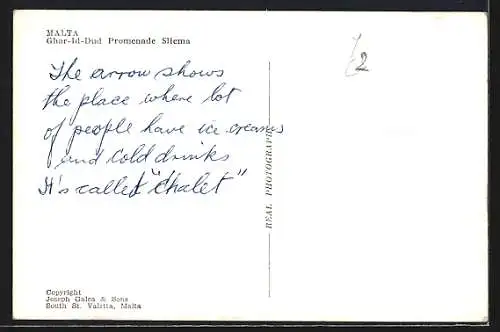 MALTA
Ghar-Id-Dud Promenade Sliema
The arrow shows
the place where lot
of people have ice creams
and cold drinks
It's called "Chalet"
REAL PHOTOGRAPH
Copyright
Joseph Galea & Sons
South St. Valetta, Malta